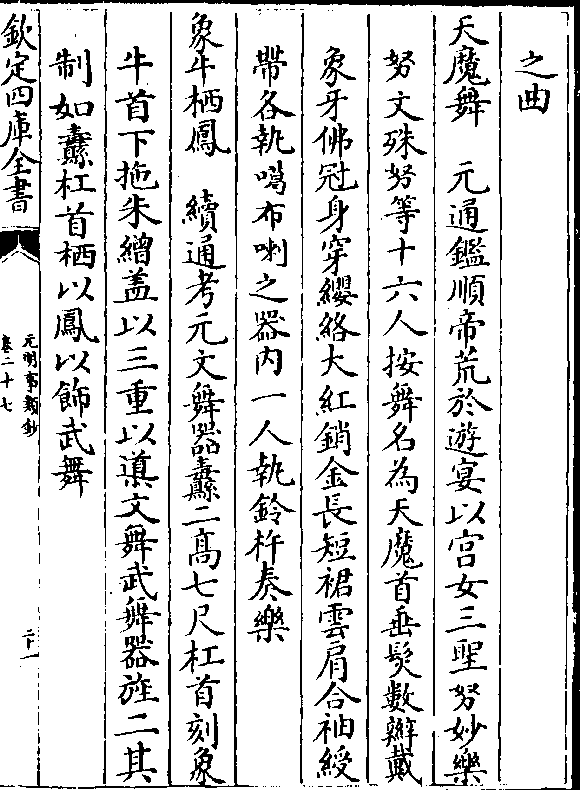 之曲
天魔舞　元通鑑順帝荒於遊宴以宫女三聖努妙樂
努文殊努等十六人按舞名為天魔首垂髮數辮戴
象牙佛冠身穿纓絡大紅銷金長短裙雲肩合袖綬
帶各執噶布喇之器内一人執鈴杵奏樂
象牛栖鳳　續通考元文舞器纛二高七尺杠首刻象
牛首下拖朱繒盖以三重以導文舞武舞器旌二其
制如纛杠首栖以鳳以飾武舞
欽定四庫全書
元明事類鈔
卷二十七
二十一